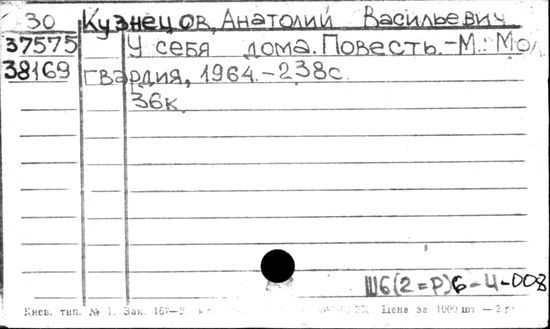 30 Кузнецов, Анатолий Васильевич
37575 У себя дома. Повесть.-М.: Мол
38169 гвардия, 1964.-238с.
36к.
Ш6(2=Р)6-4-008
Киев. тип. № 1. Зак. 167-2 Цена за 1000 шт. — 3 р